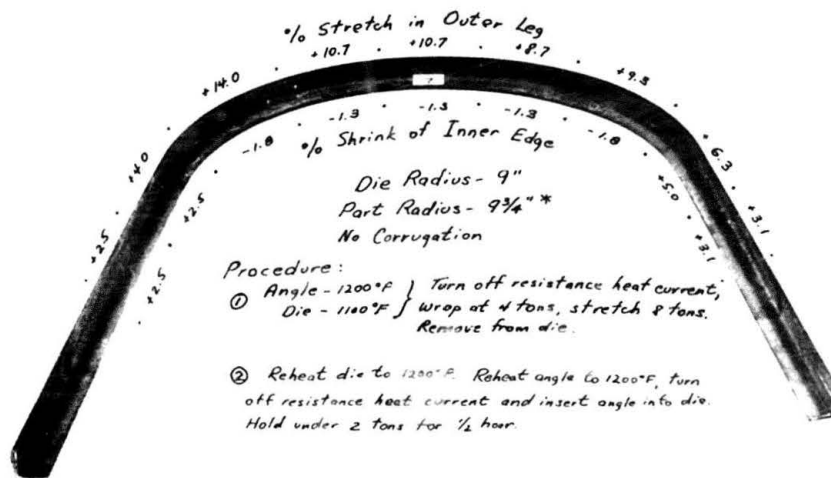 % Stretch in Outer Leg
+2.5 +4.0 +14.0 +10.7 +10.7 +8.7 +9.3 +6.3 +3.1
+2.5 +2.5 -1.8 -1.3 -1.3 -1.3 -1.8 +5.0 +3.1
% Shrink of Inner Edge
Die Radius - 9"
Part Radius - 9 3/4" *
No Corrugation
Procedure:
① Angle - 1200°F } Turn off resistance heat current,
Die - 1100°F } wrap at 4 tons, stretch 8 tons.
Remove from die.
② Reheat die to 1200°F. Reheat angle to 1200°F, turn
off resistance heat current and insert angle into die.
Hold under 2 tons for 1/2 hour.